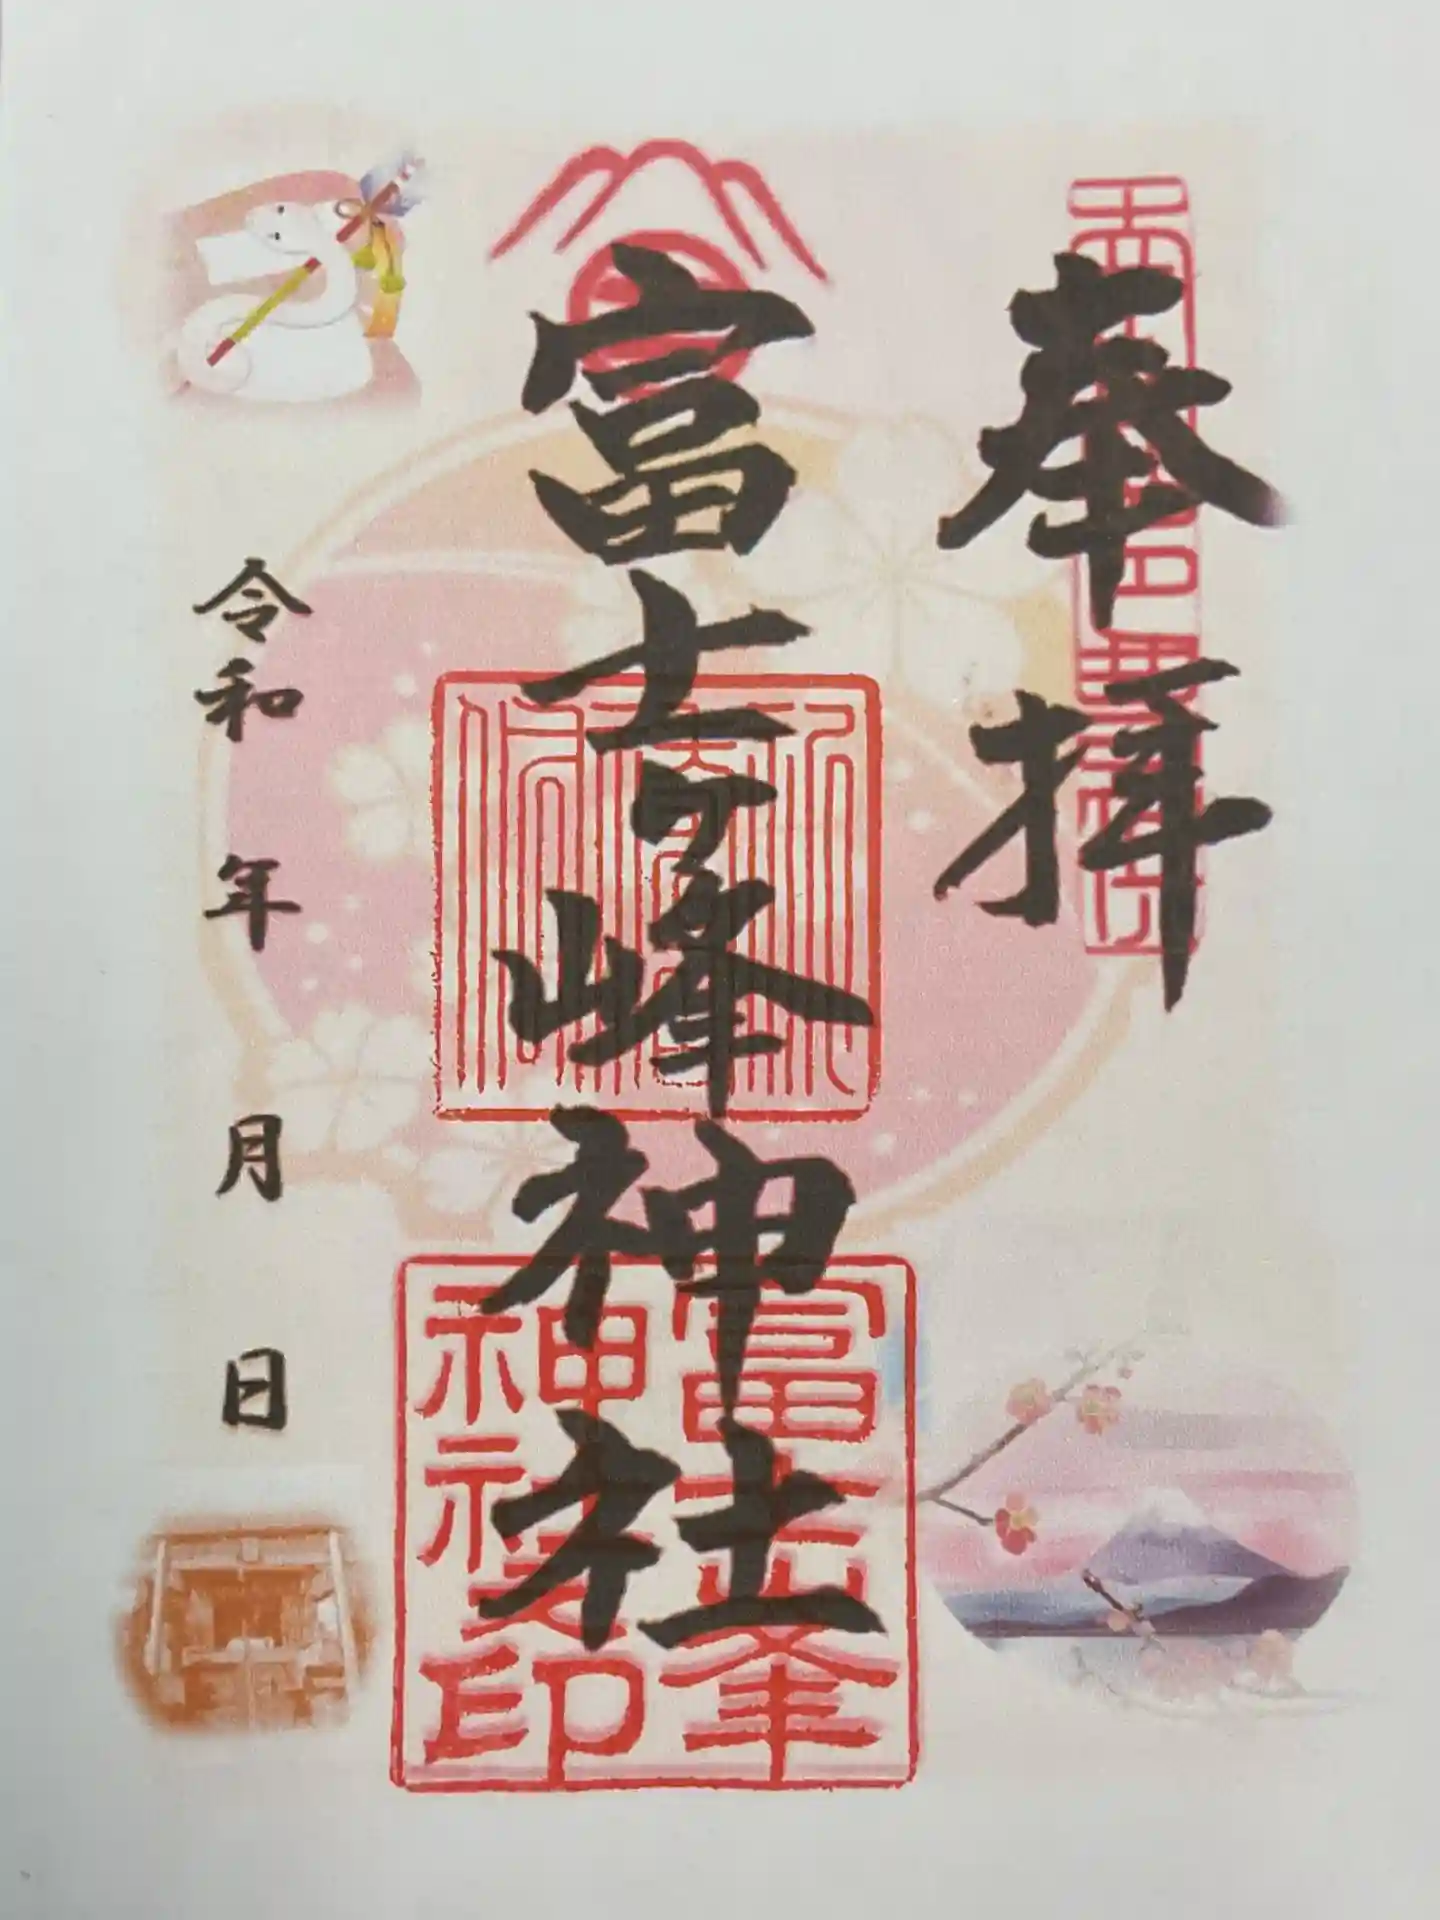 奉拝
富士ヶ峰神社
令和 年 月 日
富士峯
神社印